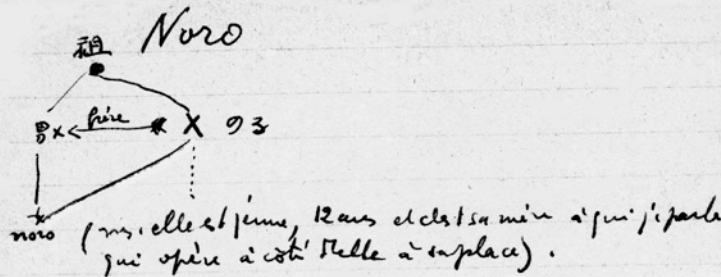 Noro
祖
男 × frère × のろ
noro (mais elle est jeune, 12 ans et c'est sa mère à qui je parle
qui opère à côté d'elle à sa place).